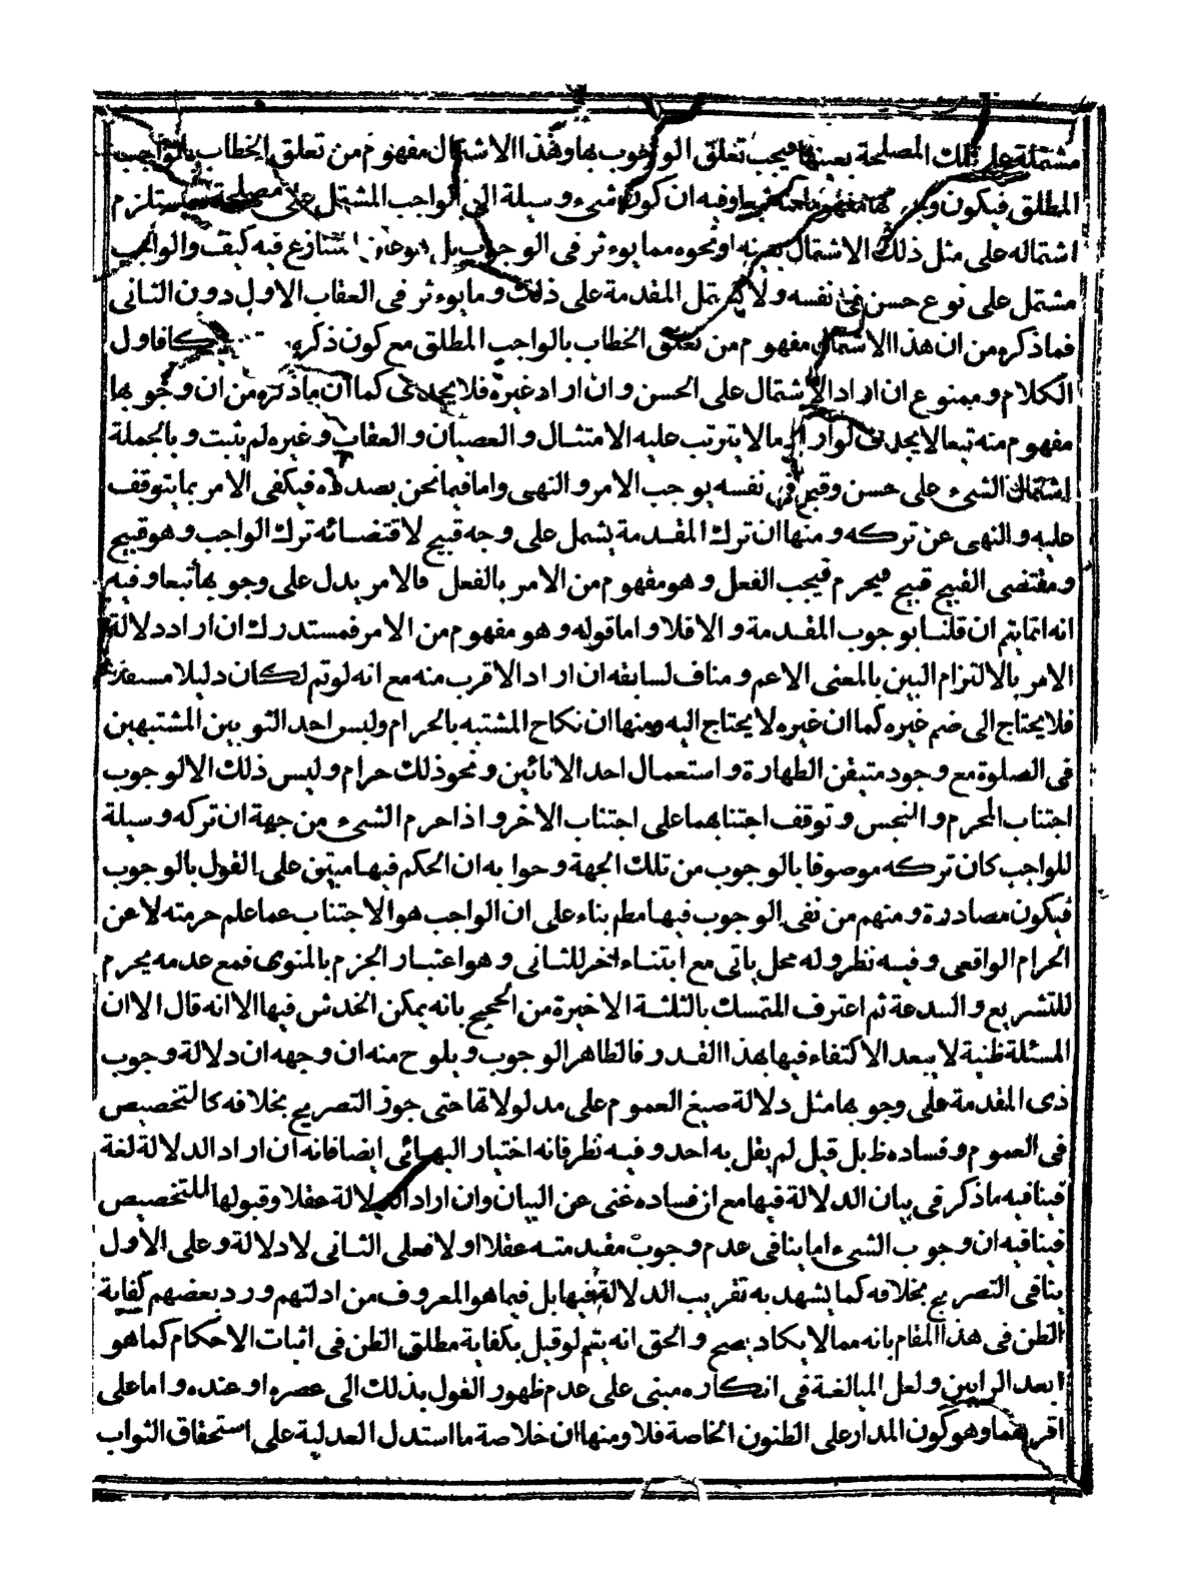 مشتملة على تلك المصلحة بعينها ويجب تعلق الوجوب بها وهذا الاشتمال مفهوم من تعلق الخطاب بالواجب
المطلق فيكون وجوبها مفهوما منه تبعا وفيه ان كون شيء وسيلة الى الواجب المشتمل على مصلحة يستلزم
اشتماله على مثل ذلك الاشتمال بعينه او نحوه مما يوءثر فى الوجوب بل هو عين المتنازع فيه كيف والواجب
مشتمل على نوع حسن فى نفسه ولا يشتمل المقدمة على ذلك وما يوءثر فى العقاب الاول دون الثانى
فما ذكره من ان هذا الاشتمال مفهوم من تعلق الخطاب بالواجب المطلق مع كون ذكره كافا ول
الكلام وممنوع ان اراد الاشتمال على الحسن وان اراد غيره فلا يجدى كما ان ما ذكره من ان وجوبها
مفهوم منه تبعا لا يجدى لو اراد ما لا يترتب عليه الامتثال والعصيان والعقاب وغيره لم يثبت وبالجملة
اشتمال الشيء على حسن وقبح فى نفسه يوجب الامر والنهى واما فيما نحن بصدده فيكفى الامر بما يتوقف
عليه والنهى عن تركه ومنها ان ترك المقدمة يشمل على وجه قبيح لاقتضائه ترك الواجب وهو قبيح
ومقتضى القبيح قبيح فيحرم فيجب الفعل وهو مفهوم من الامر بالفعل فالامر يدل على وجوبها تبعا وفيه
انه انما يتم ان قلنا بوجوب المقدمة والا فلا واما قوله وهو مفهوم من الامر فمستدرك ان اراد دلالة
الامر بالالتزام البين بالمعنى الاعم ومناف لسابقه ان اراد الاقرب منه مع انه لو تم لكان دليلا مستقلا
فلا يحتاج الى ضم غيره كما ان غيره لا يحتاج اليه ومنها ان نكاح المشتبه بالحرام ولبس احد الثوبين المشتبهين
فى الصلوة مع وجود متيقن الطهارة واستعمال احد الانائين ونحو ذلك حرام وليس ذلك الا لوجوب
اجتناب المحرم والنجس وتوقف اجتنابهما على اجتناب الاخر واذا حرم الشيء من جهة ان تركه وسيلة
للواجب كان تركه موصوفا بالوجوب من تلك الجهة وجوابه ان الحكم فيها مبتن على القول بالوجوب
فيكون مصادرة ومنهم من نفى الوجوب فيها مطم بناء على ان الواجب هو الاجتناب عما علم حرمته لا عن
الحرام الواقعى وفيه نظر وله محل ياتى مع ابتناء اخر للثانى وهو اعتبار الجزم بالمنوى فمع عدمه يحرم
للتشريع والبدعة ثم اعترف المتمسك بالثلثة الاخيرة من الحجج بانه يمكن الخدش فيها الا انه قال الا ان
المسئلة ظنية لا يبعد الاكتفاء فيها بهذا القدر فالظاهر الوجوب ويلوح منه ان وجهه ان دلالة وجوب
ذى المقدمة على وجوبها مثل دلالة صيغ العموم على مدلولاتها حتى جوز التصريح بخلافه كالتخصيص
فى العموم وفساده ظ بل قيل لم يقل به احد وفيه نظر فانه اختيار البهائى ايضا فانه ان اراد الدلالة لغة
فينافيه ما ذكر فى بيان الدلالة فيها مع ان فساده غنى عن البيان وان اراد الدلالة عقلا وقبولها للتخصيص
فينافيه ان وجوب الشيء اما ينافى عدم وجوب مقدمته عقلا او لا فعلى الثانى لا دلالة وعلى الاول
ينافى التصريح بخلافه كما يشهد به تقريب الدلالة فيها بل فيما هو المعروف من ادلتهم ورد بعضهم كفاية
الظن فى هذا المقام بانه مما لا يكاد يصح والحق انه يتم لو قيل بكفاية مطلق الظن فى اثبات الاحكام كما هو
ابعد الرايين ولعل المبالغة فى انكاره مبنى على عدم ظهور القول بذلك الى عصره او عنده واما على
اقربهما وهو كون المدار على الظنون الخاصة فلا ومنها ان خلاصة ما استدل العدلية على استحقاق الثواب